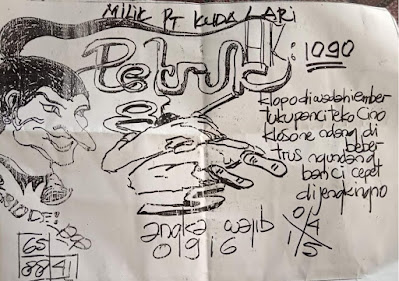 MILIK PT KUDA LARI
Petruk
: 1090
klopo diwadahi ember
tuku panci teko Cino
klosone ndang di
beber
trus ngundang
banci cepet
dijengkingno
angka wajib
0 9 1 6
0 4
1 5
65
88 41